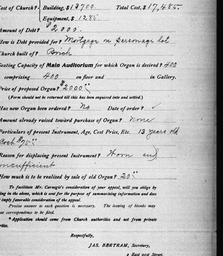 Cost of Church? Building, $12700. Total Cost, $17,485.
Equipment, $ 1285.
Amount of Debt? $ 2000.
How is Debt provided for? Mortgage on parsonage lot
Church built of? Brick
Seating Capacity of Main Auditorium for which Organ is desired? 400
comprising 400 on floor and in Gallery.
Price of proposed Organ? $2000
(Form should not be returned till this has been enquired into and settled.)
Has new Organ been ordered? No Date of order?
Amount already raised toward purchase of Organ? None
Particulars of present Instrument, Age, Cost Price, Etc. 13 years old
Cost $75
Reason for displacing present Instrument? Worn and
insufficient
How much is to be realized by sale of old Organ? 20
To facilitate Mr. Carnegie's consideration of your appeal, will you oblige by
in the above, which is sent for the purpose of summarizing information and does
imply favorable consideration of the appeal.
Precise answer to each question is necessary. The leaving of blanks may
correspondence to be filed.
Application should come from Church authorities and not from private
Respectfully,
JAS. BERTRAM, Secretary,